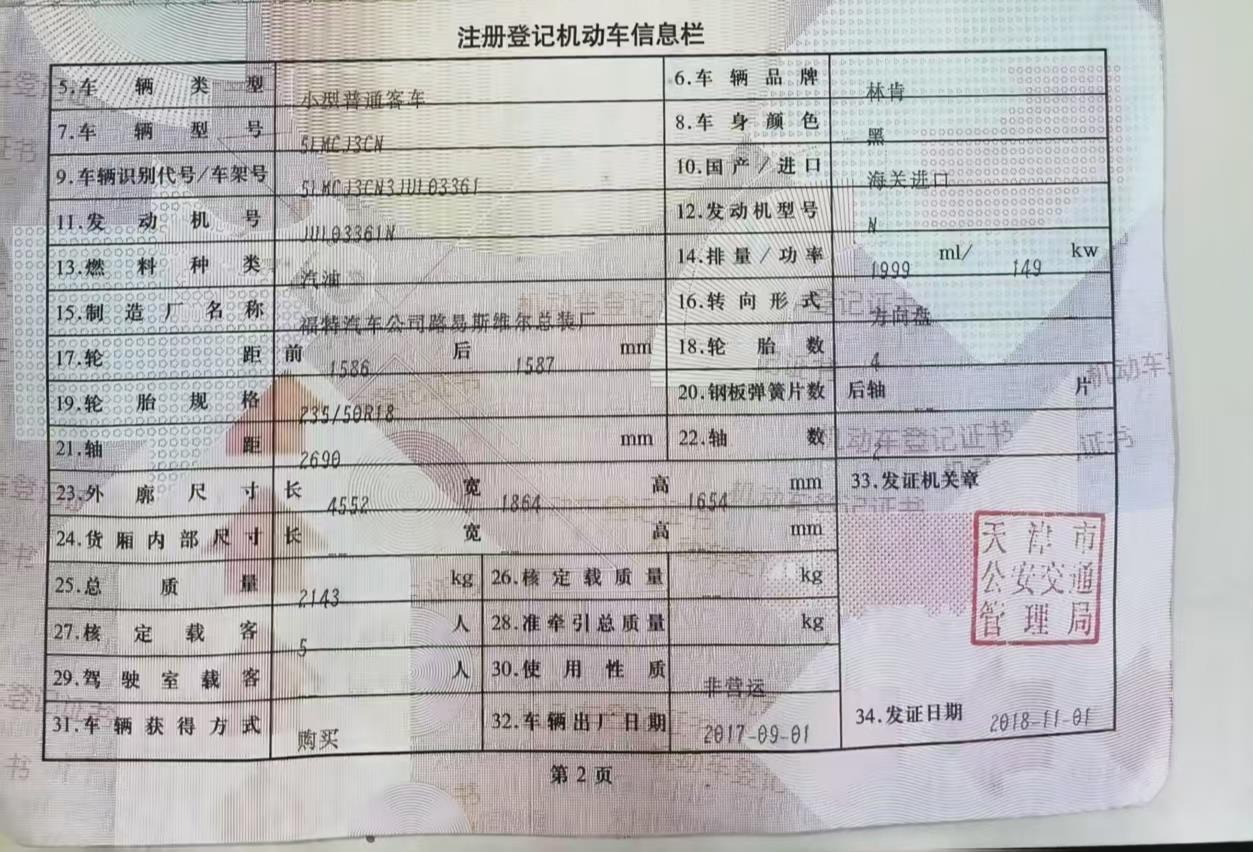 注册登记机动车信息栏
5.车辆类型 小型普通客车 6.车辆品牌 林肯
7.车辆型号 5LMCJ3CN 8.车身颜色 黑
9.车辆识别代号/车架号 5LMCJ3CN3JUL03361 10.国产/进口 海关进口
11.发动机号 JUL03361N 12.发动机型号 N
13.燃料种类 汽油 14.排量/功率 1999 ml/ 149 kw
15.制造厂名称 福特汽车公司路易斯维尔总装厂 16.转向形式 方向盘
17.轮距 前 1586 后 1587 mm 18.轮胎数 4
19.轮胎规格 235/50R18 20.钢板弹簧片数 后轴 -- 片
21.轴距 2690 mm 22.轴数 2
23.外廓尺寸 长 4552 宽 1864 高 1654 mm 33.发证机关章
24.货厢内部尺寸 长 -- 宽 -- 高 mm
天津市
公安交通
管理局
25.总质量 2143 kg 26.核定载质量 -- kg
27.核定载客 5 人 28.准牵引总质量 kg
29.驾驶室载客 -- 人 30.使用性质 非营运
31.车辆获得方式 购买 32.车辆出厂日期 2017-09-01 34.发证日期 2018-11-01
第2页